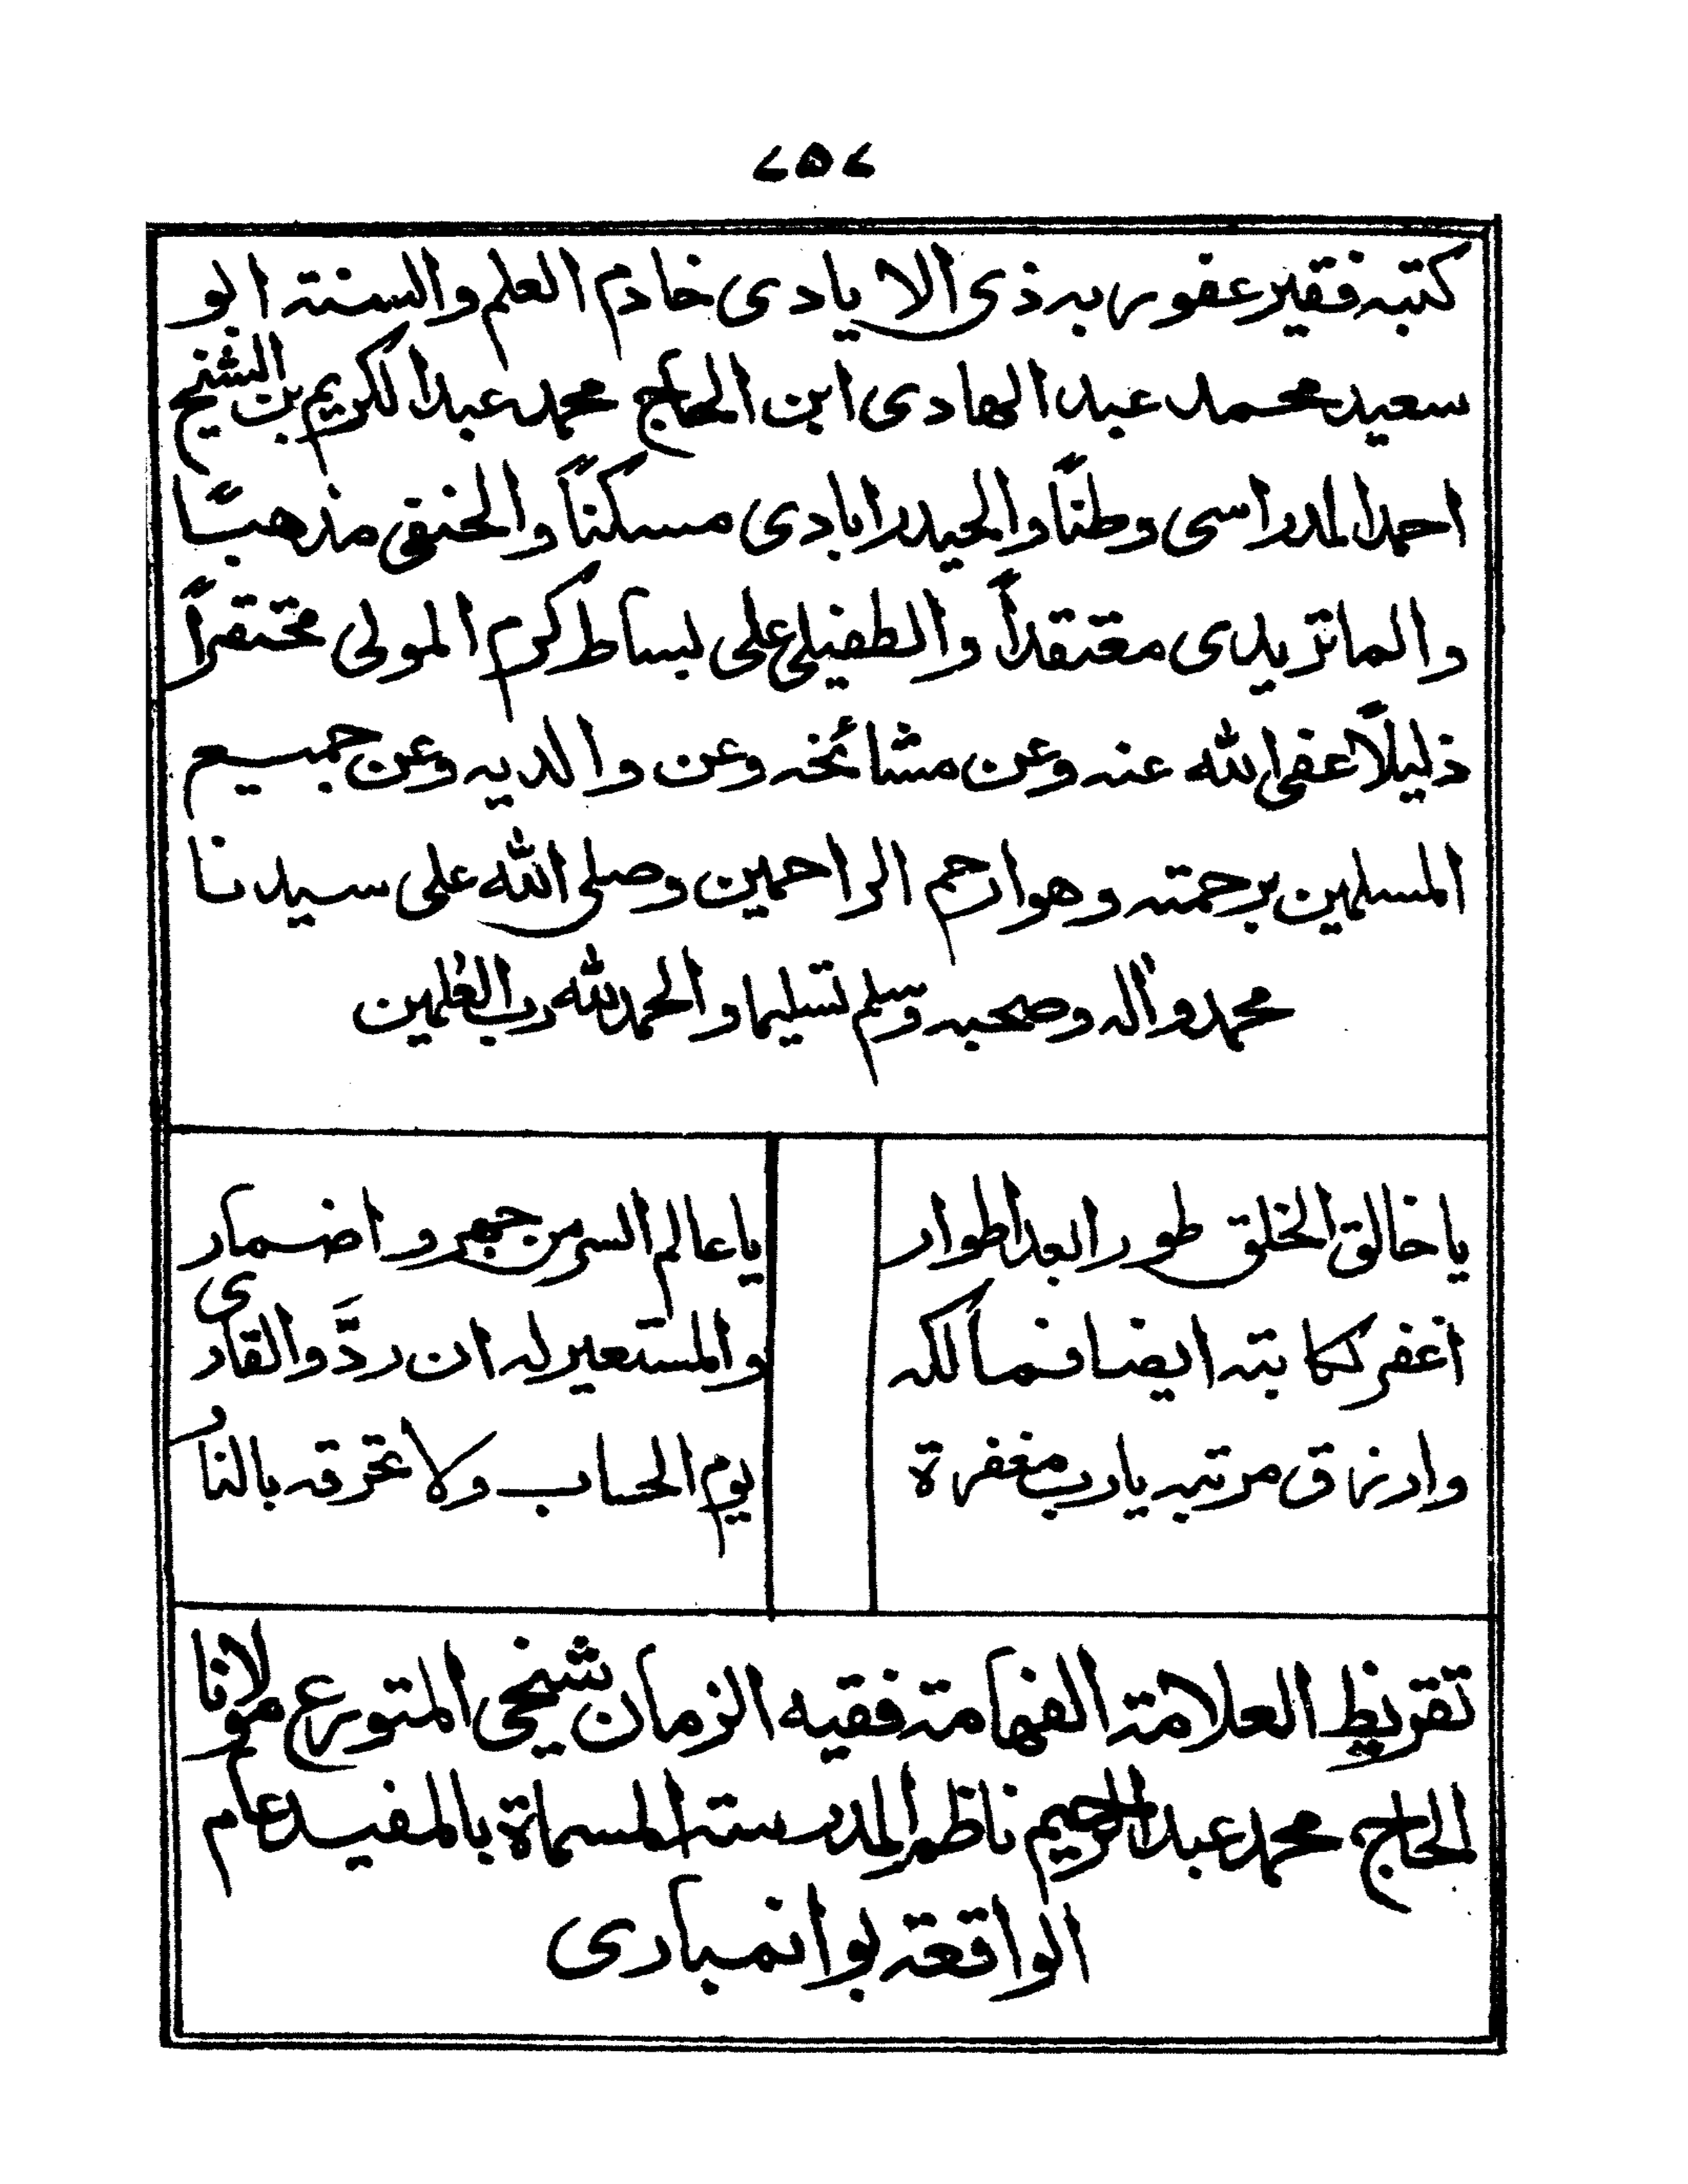 ٧٥٧
كتبه فقير عفو ربه ذى الايادى خادم العلم والسنته ابو
سعيد محمد عبد الهادى ابن الحاج محمد عبد الكريم بن الشيخ
احمد المدراسى وطنًا والحيدرابادى مسكنًا والحنفى مذهبًا
والماتزيدى معتقداً والطفيلى على بساط كرم المولى محتقراً
ذليلًا عفى الله عنه وعن مشائخه وعن والديه وعن جميع
المسلمين برحمته وهو ارحم الراحمين وصلى الله على سيدنا
محمد وآله وصحبه وسلم تسليما والحمد لله رب العٰلمين
يا خالق الخلق طورا بعد اطوار
يا عالم السر من جهر و اضمار
اغفر لكاتبه ايضا فمالكه
والمستعير له ان ردَّ والقارى
وارزق مرتبه يا رب مغفرة
يوم الحساب ولا تحرقه بالنار
تقريظ العلامة الفهامة فقيه الزمان شيخى المتورع مولانا
الحاج محمد عبد الرحيم ناظم المدرسته المسماة بالمفيد عام
الواقعة بوانمبارى